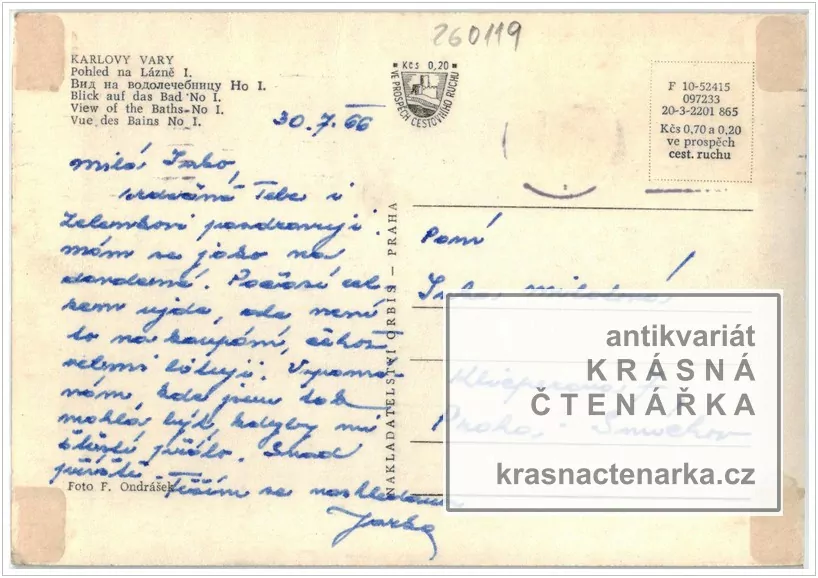 260119
KARLOVY VARY
Pohled na Lázně I.
Вид на водолечебницу Но I.
Blick auf das Bad No I.
View of the Baths No I.
Vue des Bains No I.
30.7.66
Kčs 0,20
VE PROSPĚCH CESTOVNÍHO RUCHU
F 10-52415
097233
20-3-2201 865
Kčs 0,70 a 0,20
ve prospěch
cest. ruchu
milá
srdečně Tebe i
pozdravuji.
mám se jako na
dovolené. Počasí cel
kem ujde, ale není
to na koupání, čehož
velmi lituji. Vzpomí-
nám, kde jsem
mohla být, kdyby mi
štěstí přálo. Snad
příště. Těším se nashledanou
Jarka
Foto F. Ondrášek
NAKLADATELSTVÍ ORBIS — PRAHA
Paní
Praha - Smíchov
antikvariát
KRÁSNÁ
ČTENÁŘKA
krasnactenarka.cz